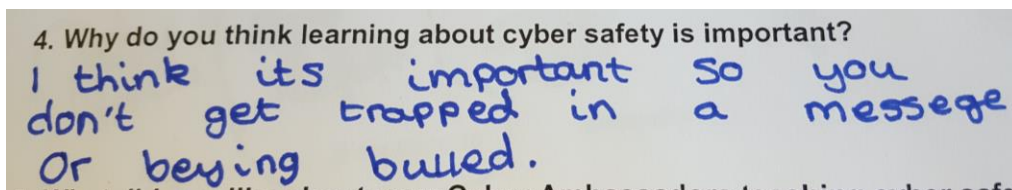 4. Why do you think learning about cyber safety is important?
I think its important so you
don't get trapped in a messege
Or beying bulled.